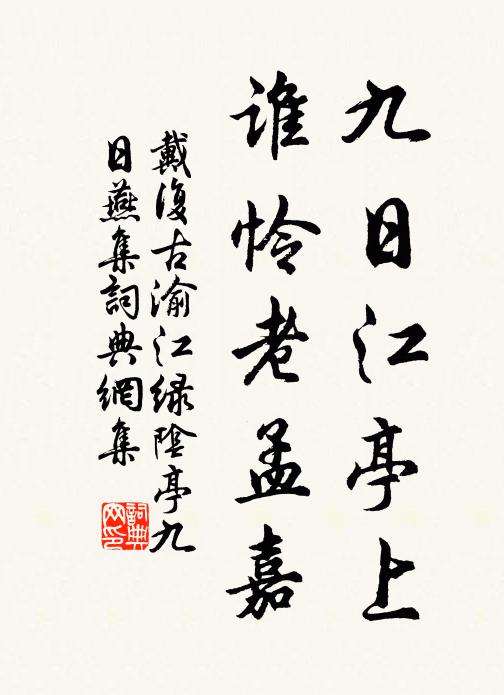 九日江亭上
谁怜老孟嘉
戴復古渝江緑陰亭九
日燕集詞典網集
詞典网印